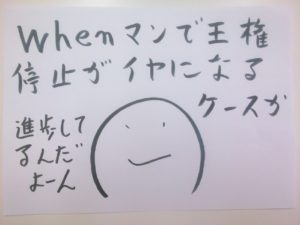 whenマンで王権
停止がイヤになる
ケースが
進歩して
るんだ
よーん